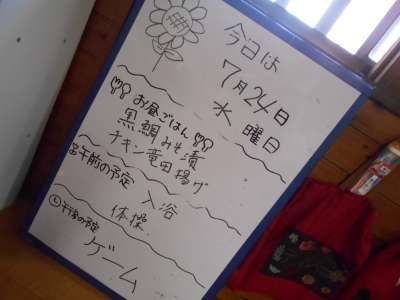 今日は
7月24日
水曜日
お昼ごはん
黒鯛みそ漬
チキン竜田揚げ
午前の予定
入浴
体操
午後の予定
ゲーム